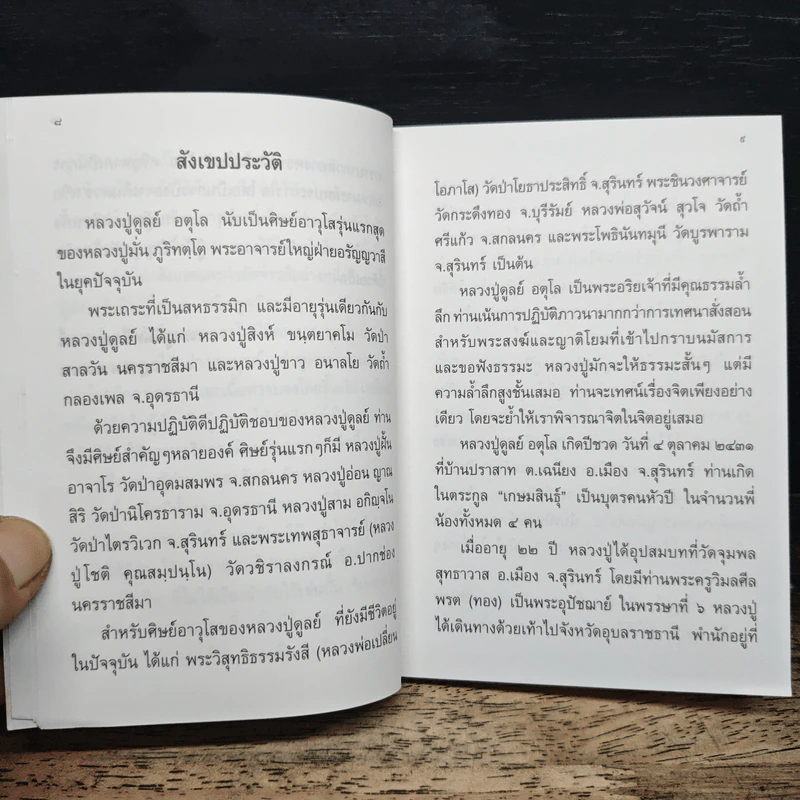 ๘
สังเขปประวัติ
หลวงปู่ดูลย์ อตุโล นับเป็นศิษย์อาวุโสรุ่นแรกสุด
ของหลวงปู่มั่น ภูริทตฺโต พระอาจารย์ใหญ่ฝ่ายอรัญญวาสี
ในยุคปัจจุบัน
พระเถระที่เป็นสหธรรมิก และมีอายุรุ่นเดียวกันกับ
หลวงปู่ดูลย์ ได้แก่ หลวงปู่สิงห์ ขนฺตยาคโม วัดป่า
สาลวัน นครราชสีมา และหลวงปู่ขาว อนาลโย วัดถ้ำ
กลองเพล จ.อุดรธานี
ด้วยความปฏิบัติดีปฏิบัติชอบของหลวงปู่ดูลย์ ท่าน
จึงมีศิษย์สำคัญๆหลายองค์ ศิษย์รุ่นแรกๆก็มี หลวงปู่ฝั้น
อาจาโร วัดป่าอุดมสมพร จ.สกลนคร หลวงปู่อ่อน ญาณ
สิริ วัดป่านิโครธาราม จ.อุดรธานี หลวงปู่สาม อกิญฺจโน
วัดป่าไตรวิเวก จ.สุรินทร์ และพระเทพสุธาจารย์ (หลวง
ปู่โชติ คุณสมฺปนฺโน) วัดวชิราลงกรณ์ อ.ปากช่อง
นครราชสีมา
สำหรับศิษย์อาวุโสของหลวงปู่ดูลย์ ที่ยังมีชีวิตอยู่
ในปัจจุบัน ได้แก่ พระวิสุทธิธรรมรังสี (หลวงพ่อเปลี่ยน
๙
โอภาโส) วัดป่าโยธาประสิทธิ์ จ.สุรินทร์ พระชินวงศาจารย์
วัดกระดึงทอง จ.บุรีรัมย์ หลวงพ่อสุวัจน์ สุวโจ วัดถ้ำ
ศรีแก้ว จ.สกลนคร และพระโพธินันทมุนี วัดบูรพาราม
จ.สุรินทร์ เป็นต้น
หลวงปู่ดูลย์ อตุโล เป็นพระอริยเจ้าที่มีคุณธรรมล้ำ
ลึก ท่านเน้นการปฏิบัติภาวนามากกว่าการเทศนาสั่งสอน
สำหรับพระสงฆ์และญาติโยมที่เข้าไปกราบนมัสการ
และขอฟังธรรมะ หลวงปู่มักจะให้ธรรมะสั้นๆ แต่มี
ความล้ำลึกสูงชั้นเสมอ ท่านจะเทศน์เรื่องจิตเพียงอย่าง
เดียว โดยจะย้ำให้เราพิจารณาจิตในจิตอยู่เสมอ
หลวงปู่ดูลย์ อตุโล เกิดปีชวด วันที่ ๔ ตุลาคม ๒๔๓๑
ที่บ้านปราสาท ต.เฉนียง อ.เมือง จ.สุรินทร์ ท่านเกิด
ในตระกูล “เกษมสินธุ์” เป็นบุตรคนหัวปี ในจำนวนพี่
น้องทั้งหมด ๔ คน
เมื่ออายุ ๒๒ ปี หลวงปู่ได้อุปสมบทที่วัดจุมพล
สุทธาวาส อ.เมือง จ.สุรินทร์ โดยมีท่านพระครูวิมลศีล
พรต (ทอง) เป็นพระอุปัชฌาย์ ในพรรษาที่ ๖ หลวงปู่
ได้เดินทางด้วยเท้าไปจังหวัดอุบลราชธานี พำนักอยู่ที่